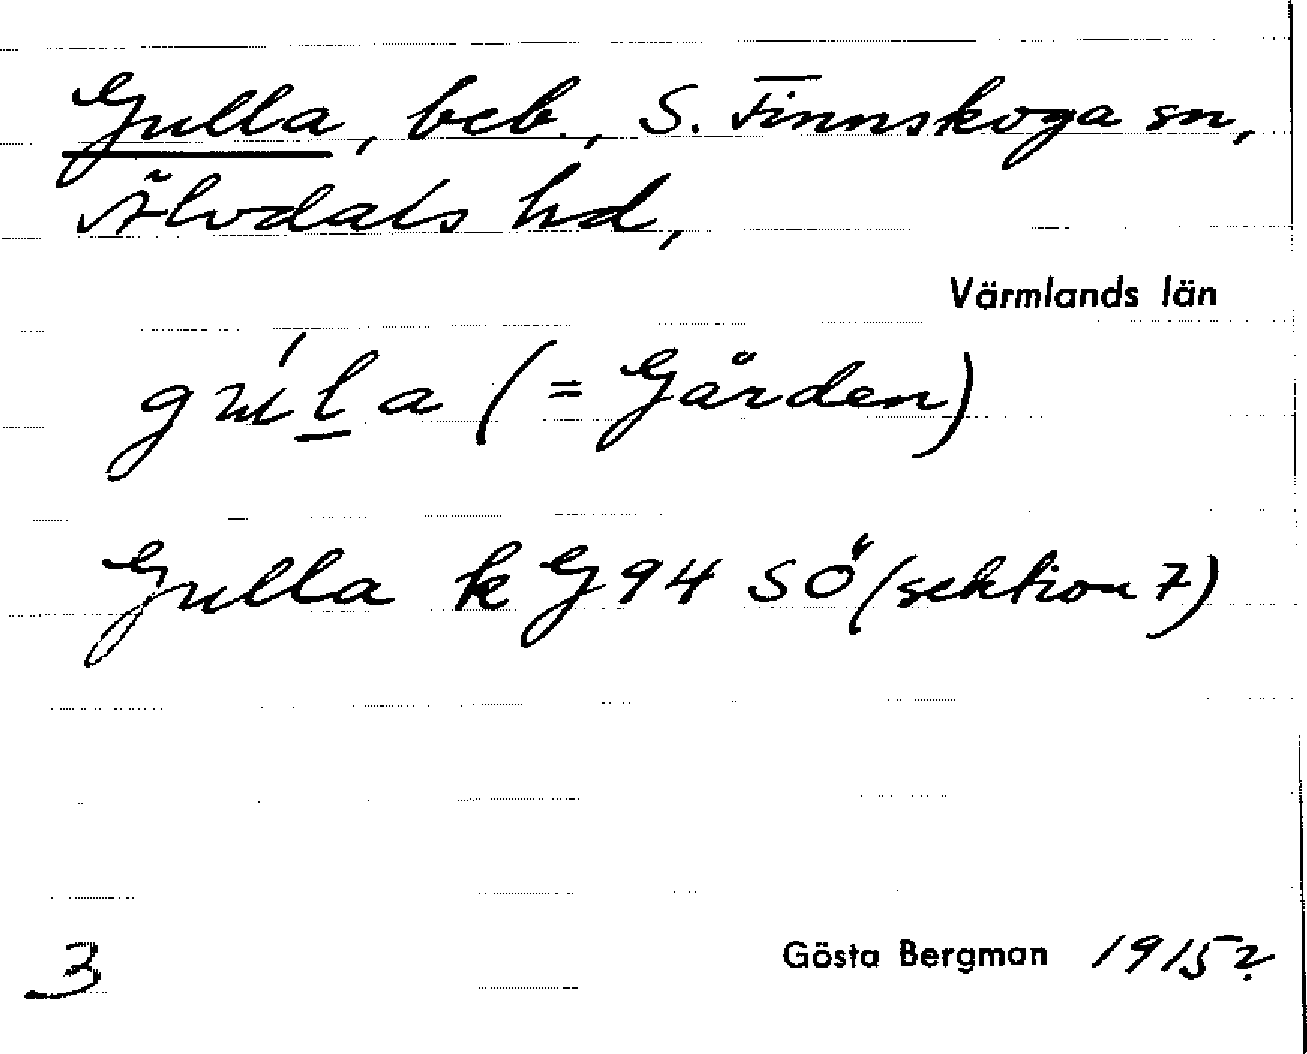 Gulla, beb., S. Finnskoga sn,
Älvdals hd,
Värmlands län
gúl̲a (= Gården)
Gulla k G94 SÖ (sektion 7)
3
Gösta Bergman 1915?